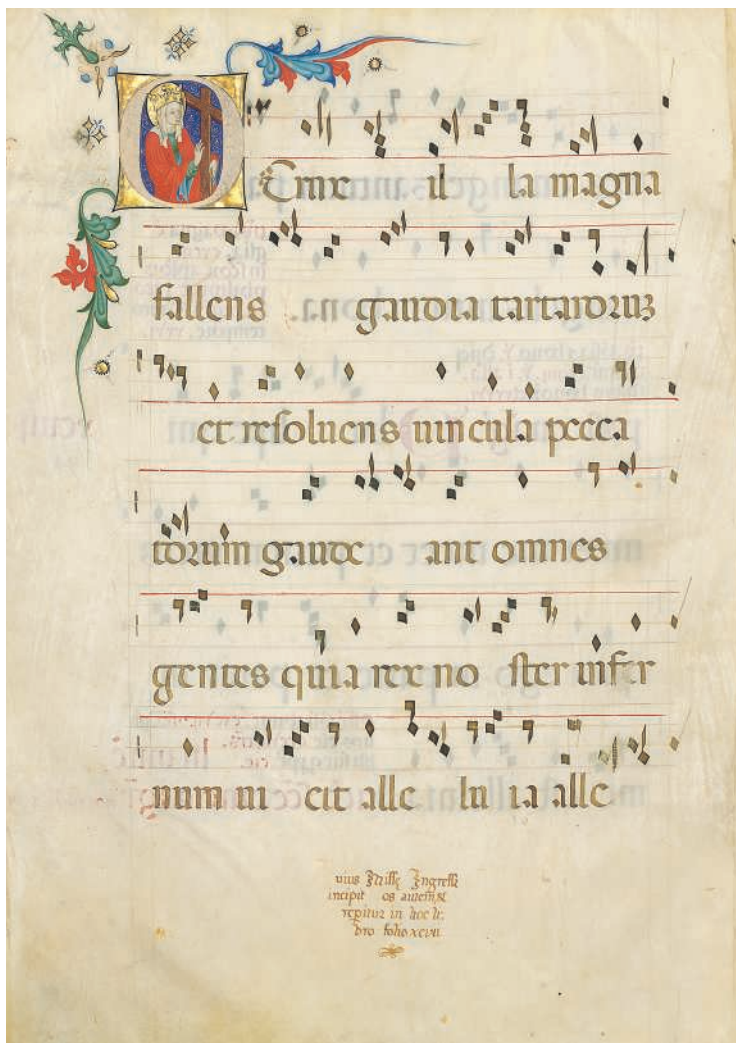 O Crux il la magna
fallens gaudia tartaroruz
et resoluens uincula pecca
torum gaude ant omnes
gentes quia rex no ster infer
num ui cit alle lu ia alle
uius Misse Ingressa
incipit os autem &
repitur in hoc li:
bro folio xcvii